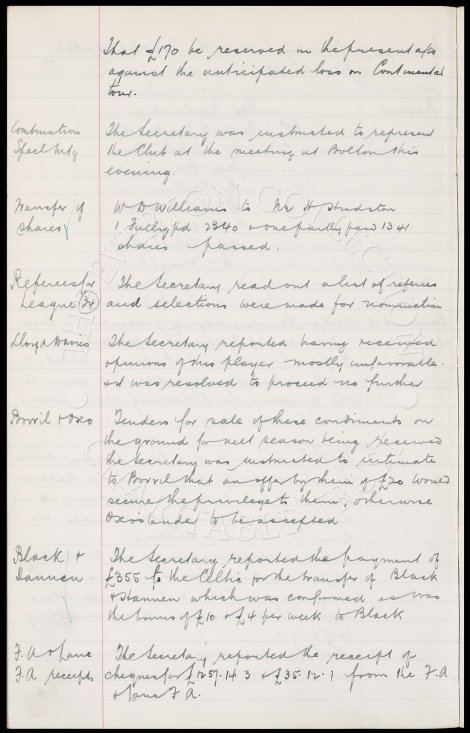 That £170 be reserved in the present a/cs
against the anticipated loss on Continental
tour.
Combination
Specl Mtg
The Secretary was instructed to represent
the Club at the meeting at Bolton this
evening.
Transfer of
shares
W D Williams to Mr H
1 Fully pd 2340 + one partly paid 1341
shares passed.
Referees for
League 34
The Secretary read out a list of referees
and selections were made for nomination
Lloyd Davies
The Secretary reported having received
opinions of this player mostly unfavorable
& it was resolved to proceed no further
Bovril & Oxo
Tenders for sale of these condiments on
the ground for next season being reserved
the Secretary was instructed to intimate
to Bovril that an offer by them of £20 would
secure the privilege to them, otherwise
Oxos tender to be accepted
Black &
Hannen
The Secretary reported the payment of
£355 to the Celtic for the transfer of Black
& Hannen which was confirmed as was
the bonus of £10 & £4 per week to Black
F.A & Lanc
F.A receipts
The Secretary reported the receipt of
cheques for £1257.14.3 & £35.12.1 from the F.A
& Lanc F.A.